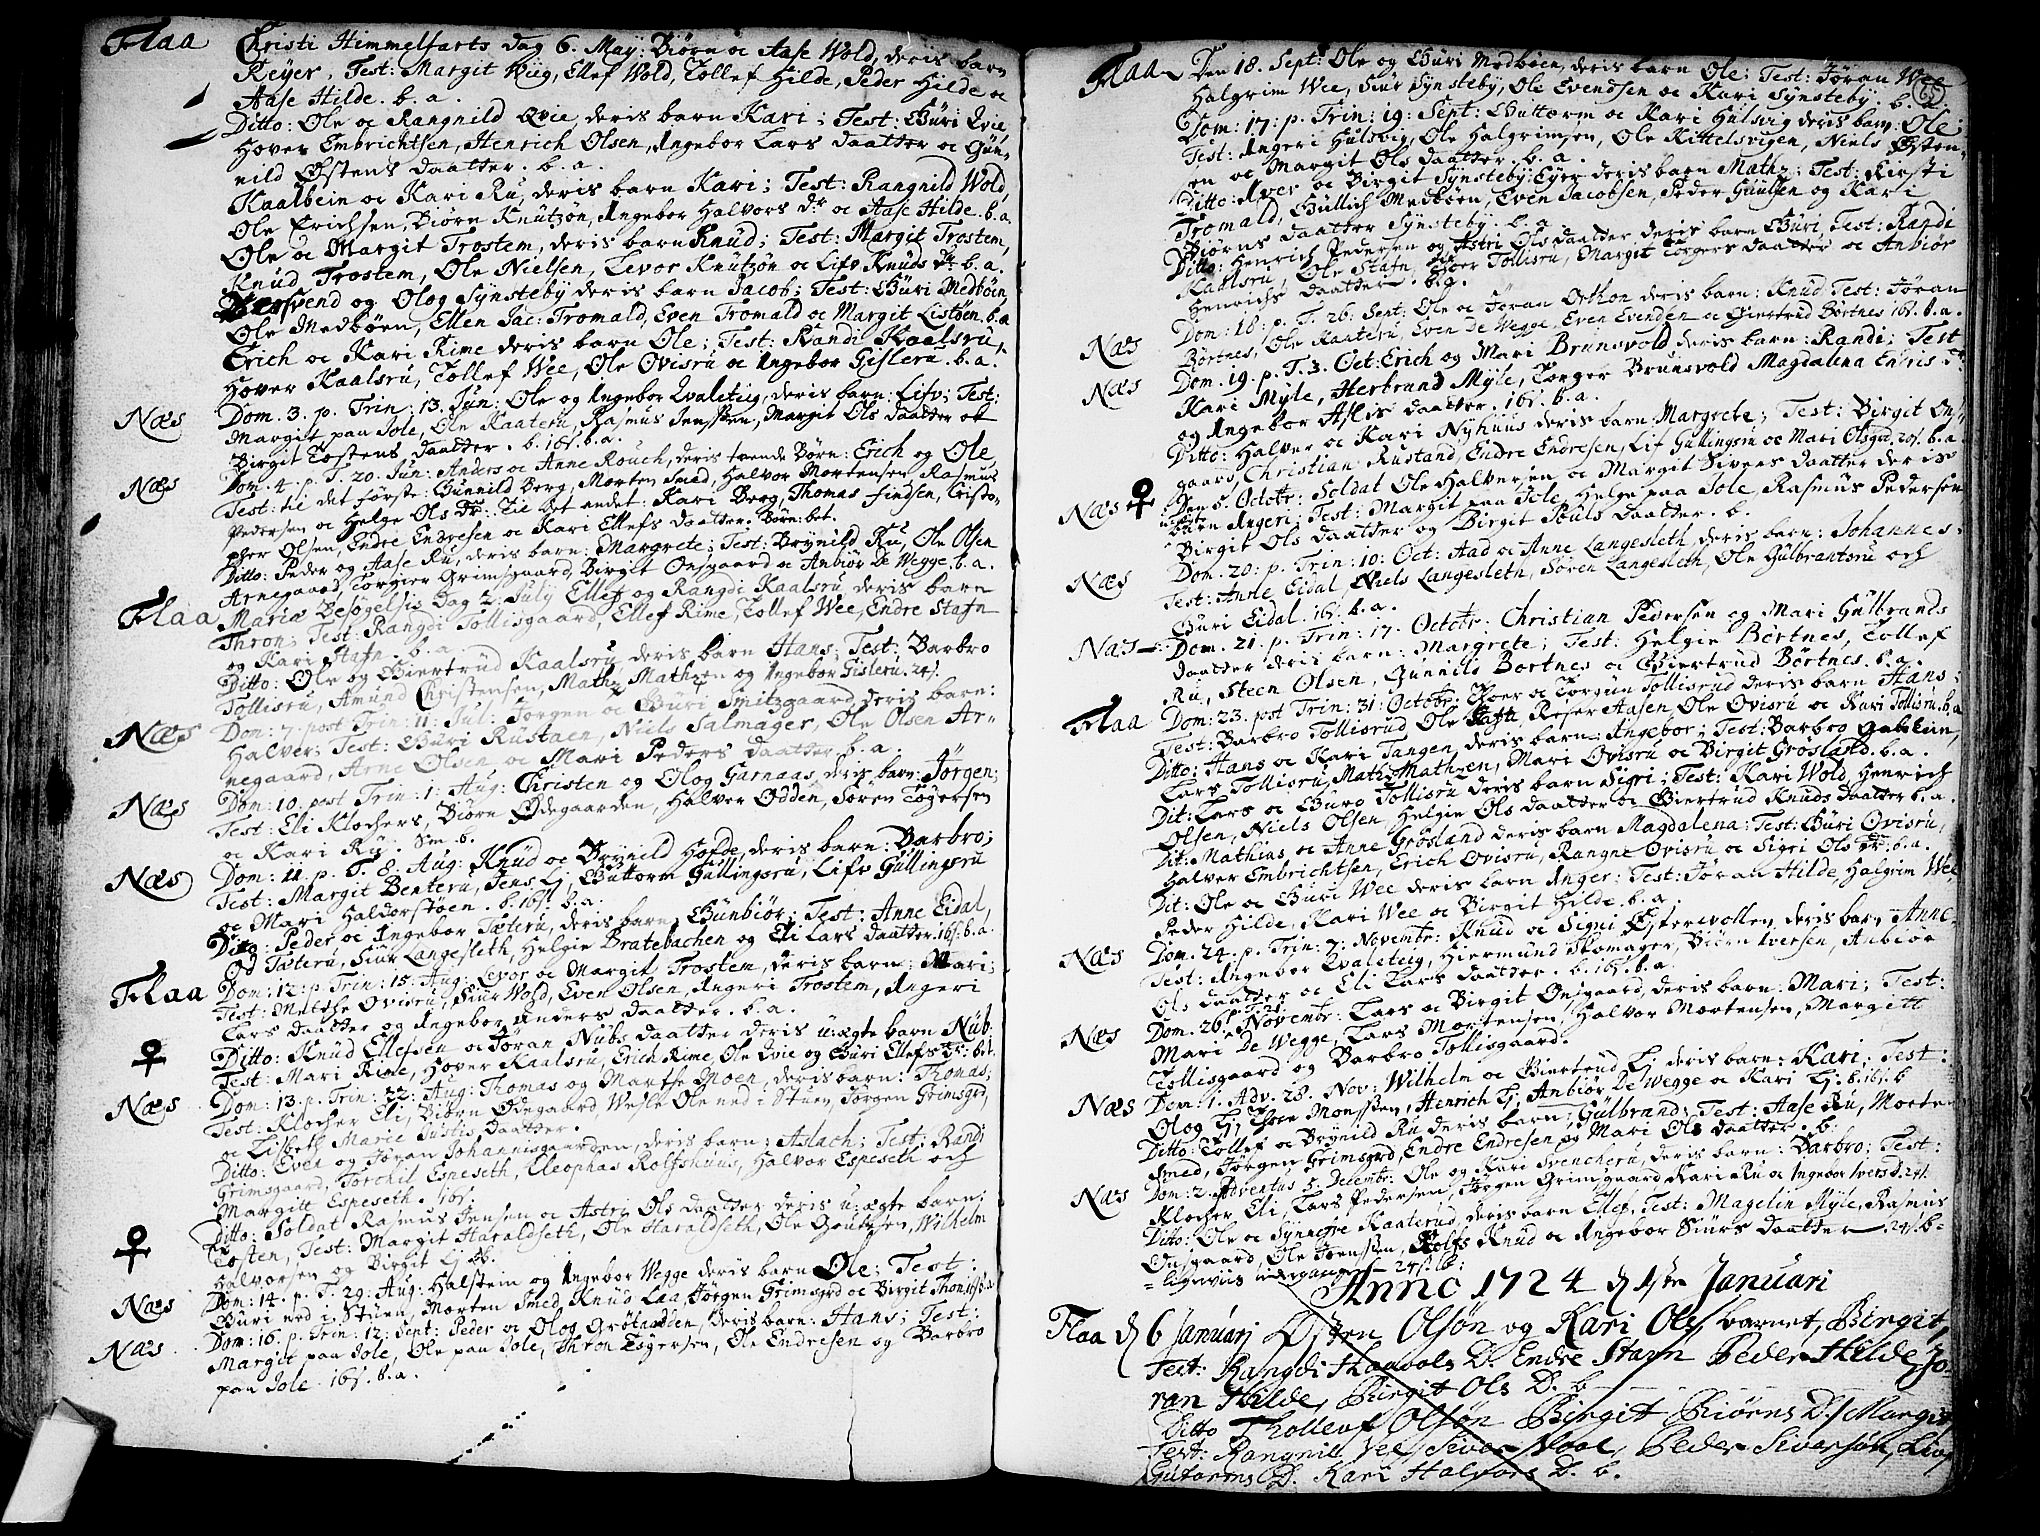 Flaa Christi Himmelfarts Dag 6. May: Biørn oc Aase Wold, deris barn
Reyer, Test: Margit Wiig, Ellef Wold, Tollef Hilde, Peder Hilde oc
Aase Hilde. b. a.
Ditto: Ole oc Rangnild Qvie, deris barn Kari; Test: Guri Qvie,
Hover Embrichtsen, Henrich Olsen, Ingebor Lars daatter oc Gun-
nild Østens daatter. b. a.
Kaalbein oc Kari Ru, deris barn Kari; Test: Rangnild Wold,
Ole Erichsen, Biørn Knutzøn, Ingebor Halvors dr oc Aase Hilde. b. a.
Ole oc Margit Trostem, deris barn Knud; Test: Margit Trostem,
Knud Trostem, Ole Nielsen, Levor Knutzøn oc Lifv Knuds dr. b. a.
svend og Olog Synsteby deris barn Jacob; Test: Guri Medbøen,
Ole Medbøen, Ellen Jac: Tromald, Even Tromald oc Margit Listøen. b. a
Erich oc Kari Rime deris barn Ole; Test: Randi Kaalsru,
Hover Kaalsru, Tollef Wee, Ole Ovisru oc Ingebor Gisleru. b. a.
Næs Dom. 3. p. Trin: 13. Jun: Ole og Ingebor Qvaleteig, deris barn: Lifv; Test:
Margit paa Jole, Ole Kaateru, Rasmus Jenssen, Margit Ols daatter oc
Birgit Tostens daatter. b. 16s. b. a.
Næs Dom. 4. p. T. 20. Jun: Anders oc Anne Rouch, deris tvende Børn: Erich og Ole
Test: til det første: Gunnild Berg, Morten Smed, Halvor Mortensen, Rasmus
Pedersen oc Helge Ols dr: Til det andet: Kari Berg, Thomas Findsen, Cristo-
pher Olsen, Endre Endresen oc Kari Ellefs daatter. Børn: bet.
Ditto: Peder og Aase Ru, deris barn: Margrete; Test: Brynild Ru, Ole Olsen
Arnegaard, Torgier Grimsgaard, Birgit Onsgaard oc Anbiør De Wegge. b. a.
Flaa Mariæ Besøgelsis Dag 2. July Ellef og Rangdi Kaalsru deris barn
Thron; Test: Rangdi Tollisgaard, Ellef Rime, Tollef Wee, Endre Stafn
og Kari Stafn. b. a.
Ditto: Ole og Giertrud Kaalsru, deris barn Hans; Test: Barbro
Tollisru, Amund Christensen, Mathz Mathzen og Ingebor Gisleru. 24s.
Næs Dom: 7. post Trin: 11. Jul: Jørgen oc Guri Smitzgaard deris barn:
Halver; Test: Guri Rustaen, Niels Salmager, Ole Olsen Ar-
negaard, Arne Olsen oc Mari Peders daatter. b. a.
Næs Dom: 10. post Trin: 1. Aug: Christen og Olog Garnaas, deris barn: Jørgen;
Test: Eli Klochers, Biørn Ødegaarden, Halver Odden, Søren Togersen
oc Kari Ru. Sm. b.
Næs Dom: 11. p. T. 8. Aug: Knud oc Brynild Hofde, deris barn: Barbro;
Test: Margit Benteru, Jens Lj, Guttorm Gullingsru, Lifv Gullingsru
oc Mari Haldorstøen. b. 16s. b. a.
Ditto: Peder oc Ingebor Tæteru, deris barn: Gunbiør; Test: Anne Eidal,
Od Tæteru, Siur Langesleth, Helgie Bratebachen og Eli Lars daatter. 16s. b. a.
Flaa Dom: 12. p. Trin: 15. Aug: Levor oc Margit Trostem, deris barn: Mari;
Test: Mætthe Ovisru, Siur Wold, Even Olsen, Angeri Trostem, Angeri
Lars daatter og Ingebor Anders daatter. b. a.
Ditto: Knud Ellefsen oc Jøran Nubs daatter deris u:ægte barn Nub.
Test: Mari Rime, Hover Kaalsru, Erich Rime, Ole Qvie og Guri Ellefs dr: bet.
Næs Dom: 13. p. Trin: 22. Aug: Thomas og Marthe Moen, deris barn: Thomas;
Test: Klocher Eli, Biørn Ødegaard, Wesle Ole ned i Stuen, Jørgen Grimsgrd,
oc Lisbeth Marie Justis daatter.
Ditto: Even og Jøran Johannisgaarden, deris barn: Aslach; Test: Randi
Grimsgaard, Torchil Espeseth, Cleophas Rolfshuus, Halvor Espeseth och
Margitt Espeseth. 16s.
Ditto: Soldat Rasmus Jensen oc Astri Ols daatter deris u:ægte barn:
Tosten, Test: Margit Haraldseth, Ole Haraldseth, Ole Goutesen, Wilhelm
Halvorsen og Birgit Lj. b.
Næs Dom: 14. p. T. 29. Aug: Halstein og Ingebor Wegge deris barn Ole; Test:
Guri ned i Stuen, Morten Smed, Knud Laa, Jørgen Grimsgrd oc Birgit
Næs Dom: 16. p. Trin: 12. Sept: Peder oc Olog Grøtnødden, deris barn: Hans; Test:
Margit paa Jole, Ole paa Jole, Thron Togersen, Ole Endresen og Barbro
paa Jole. 16s. b. a.
65
Flaa Den 18. Sept: Ole og Guri Medbøen, deris barn Ole; Test: Jøran Wee
Halgrim Wee, Siur Synsteby, Ole Evendsen oc Kari Synsteby. b. a.
Dom: 17: p. Trin: 19. Sept: Guttorm oc Kari Hulsvig deris barn Ole;
Test: Angeri Hulsvig, Ole Halgrimsen, Ole Kittelsvigen, Niels Østen-
en oc Margit Ols daatter. b. a.
Ditto: Iver oc Birgit Synsteby: Eyer deris barn Mathz; Test: Kirsti
Tromald, Gullich Medbøen, Even Jacobsen, Peder Guulsen og Kari
Biørns daatter Synsteby. b. a.
Ditto: Henrich Pedersen og Astri Ols daatter deris barn Guri, Test: Randi
Kaalsru, Ole Stafn, Thoer Tollisru, Margit Torgers daatter oc Anbiør
Henrichs daatter. b. a.
Næs Dom: 18: p. T. 26: Sept: Ole oc Jøran Orthon deris barn: Knud; Test: Jøran
Børtnes, Ole Kaateru, Even De Wegge, Even Evensen oc Giertrud Børtnes 16s. b. a.
Næs Dom. 19. p. T. 3. Oct: Erich og Mari Brunsvold deris barn: Randi; Test:
Kari Myle, Herbrand Myle, Torger Brunsvold, Magdalena Endris dr:
og Ingebor Aslis daatter. 16s. b. a.
Ditto: Halver oc Kari Nyhuus deris barn: Margrete; Test: Birgit Ons-
gaard, Christian Rustand, Endre Endresen, Lif Gullingsru oc Mari Olsgrd. 20s. b. a.
Næs Den 5. Octobr: Soldat Ole Halversen oc Margit Sivers daatter deris
u:ægte barn Angeri; Test: Margit paa Jole, Helge paa Jole, Rasmus Pedersen
Birgit Ols daatter og Birgit Pouls daatter. b.
Næs Dom. 20: p. Trin: 10: Oct: Aad oc Anne Langesleth, deris barn: Johannes;
Test: Anne Eidal, Niels Langesleth, Søren Langesleth, Ole Gulbrantsru och
Guri Eidal. 16s. b. a.
Næs Dom. 21. p. Trin: 17. Octobr. Christian Pedersen og Mari Gulbrands
daatter deris barn: Margrete; Test: Helgie Børtnes, Tollef
Ru, Steen Olsen, Gunnild Børtnes oc Giertrud Børtnes. b. a.
Flaa Dom: 23. post Trin: 31: Octobr: Thoer oc Torgun Tollisrud deris barn Hans;
Test: Barbro Tollisrud, Ole Reier Aasen, Ole Ovisru oc Kari Tollisru. b. a
Ditto: Hans oc Kari Tangen, deris barn: Ingebor; Test: Barbro
Lars Tollisru, Mathz Mathzen, Mari Ovisru oc Birgit Grosland. b. a.
Dit: Lars oc Guro Tollisru deris barn Sigri; Test: Kari Wold, Henrich
Olsen, Niels Olsen, Helgie Ols daatter oc Giertrud Knuds daatter b. a.
Dit: Mathias oc Anne Grøsland deris barn Magdalena: Test: Guri Ovisru,
Halver Embrichtsen, Erich Ovisru, Rangne Ovisru oc Sigri Ols dr: b. a.
Dit: Ole oc Guri Wee deris barn Anger; Test: Jøran Hilde, Halgrim Wee,
Peder Hilde, Kari Wee oc Birgit Hilde. b. a.
Næs Dom. 24. p. Trin: 7. Novembr: Knud oc Signi deris barn Anne
Test: Ingebor Qvaleteig, Hiermund Skomager, Biørn Iversen, Anbiør
Ols daatter oc Eli Lars daatter. b. 16s. b. a.
Næs Dom. 26. Novembr: Lars oc Birgit Onsgaard, deris barn: Mari; Test:
Mari De Wegge, Lars Mortensen, Halvor Mortensen, Margitt
Tollisgaard og Barbro Tollisgaard.
Næs Dom: 1. Adv. 28. Nov: Wilhelm oc Giertrud Lj deris barn: Kari; Test:
Olog Lj, Thore Monssen, Henrich Lj, Anbiør De Wegge oc Kari Lj. b. 16s. b
Ditto: Tollef oc Brynild Ru deris barn; Gulbrand; Test: Aase Ru, Morten
Smed, Jørgen Grimsgrd, Endre Endresen og Mari Ols daatter. b.
Næs Dom: 2. Adventus 5. Decembr: Ole og Kari Svencheru, deris barn: Barbro; Test:
Klocher Eli, Lars Pedersen, Jørgen Grimsgaard, Kari Ru oc Ingebor Ivers d. 24s.
Ditto: Ole oc Synnøve Kaaterud, deris barn Ellef, Test: Magelin Myle, Rasmus
Onsgaard, Ole Joenssen, Rolfs Knud oc Ingebor Siurs daatter 24s. b.
Anno 1724 d 1ste Januari
Flaa d 6 Januarj Østen Olsøn og Kari Oles barnet, Birgit,
Test: Rangdi D. Endre Stafn Peder Hilde Jo-
ran Hilde, Birgit Ols D. b
Ditto Thollenf Olsøn Birgit Biørens D. Margit,
Test: Rangnil Vee, Sivor Noal, Peder Sivorsøn, Liv
Gutorms D. Kari Halvors D. b.